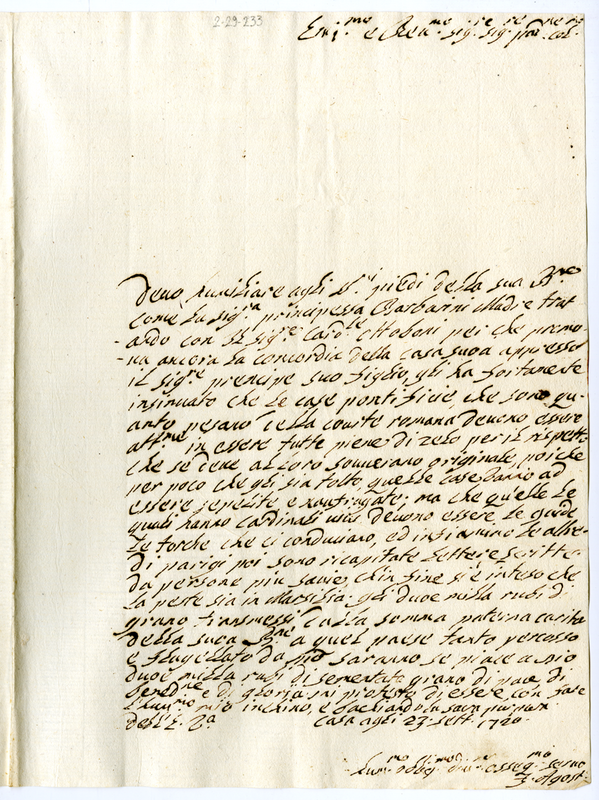 2-29-233
Em.mo e Reu.mo sig.re sig.re
Deuo humiliare agli S.i piedi della sua B.ne
come la sig.ra principessa Barbarini Madre trat
ando con il sig.re Card.le ottoboni per che premo
na ancora la concordia della casa suoa appresso
il sig.re prencipe suo figlio, gli ha fortamente
insinuato che le case pontificie, che sono qu-
anto pesano della courte romana deueno essere
att.me in essere tutte piene di zelo per il rispetto
che se deue al loro souuerano originale, poiche
per poco che gli sia tolto, quelle case uanno ad
essere sepelite, e naufragate; ma che quelle le
quali hanno Cardinali deuono essere le guide
le torche che ci conducano, ed infiamino le altre
di parigi poi sono ricapitate lettere scritte
da persone piu sauie, ch'in fine s'è inteso che
la peste sia in Marsilia. gli duoe milla rubi di
grano transmessi dalla somma paterna carita
della suoa B.ne a quel paese tanto percosso
e flagellato da saranno se piace a Dio
duoe milla rubi di sementato grano di pace di
bened.ne e di gloria; mi protesto di essere con fare
mio inchino, e bacciando la sacra
dell'E. V.a Casa agli 23 sett. 1720.
Hum.mo obbg.mo osseq.mo seruo